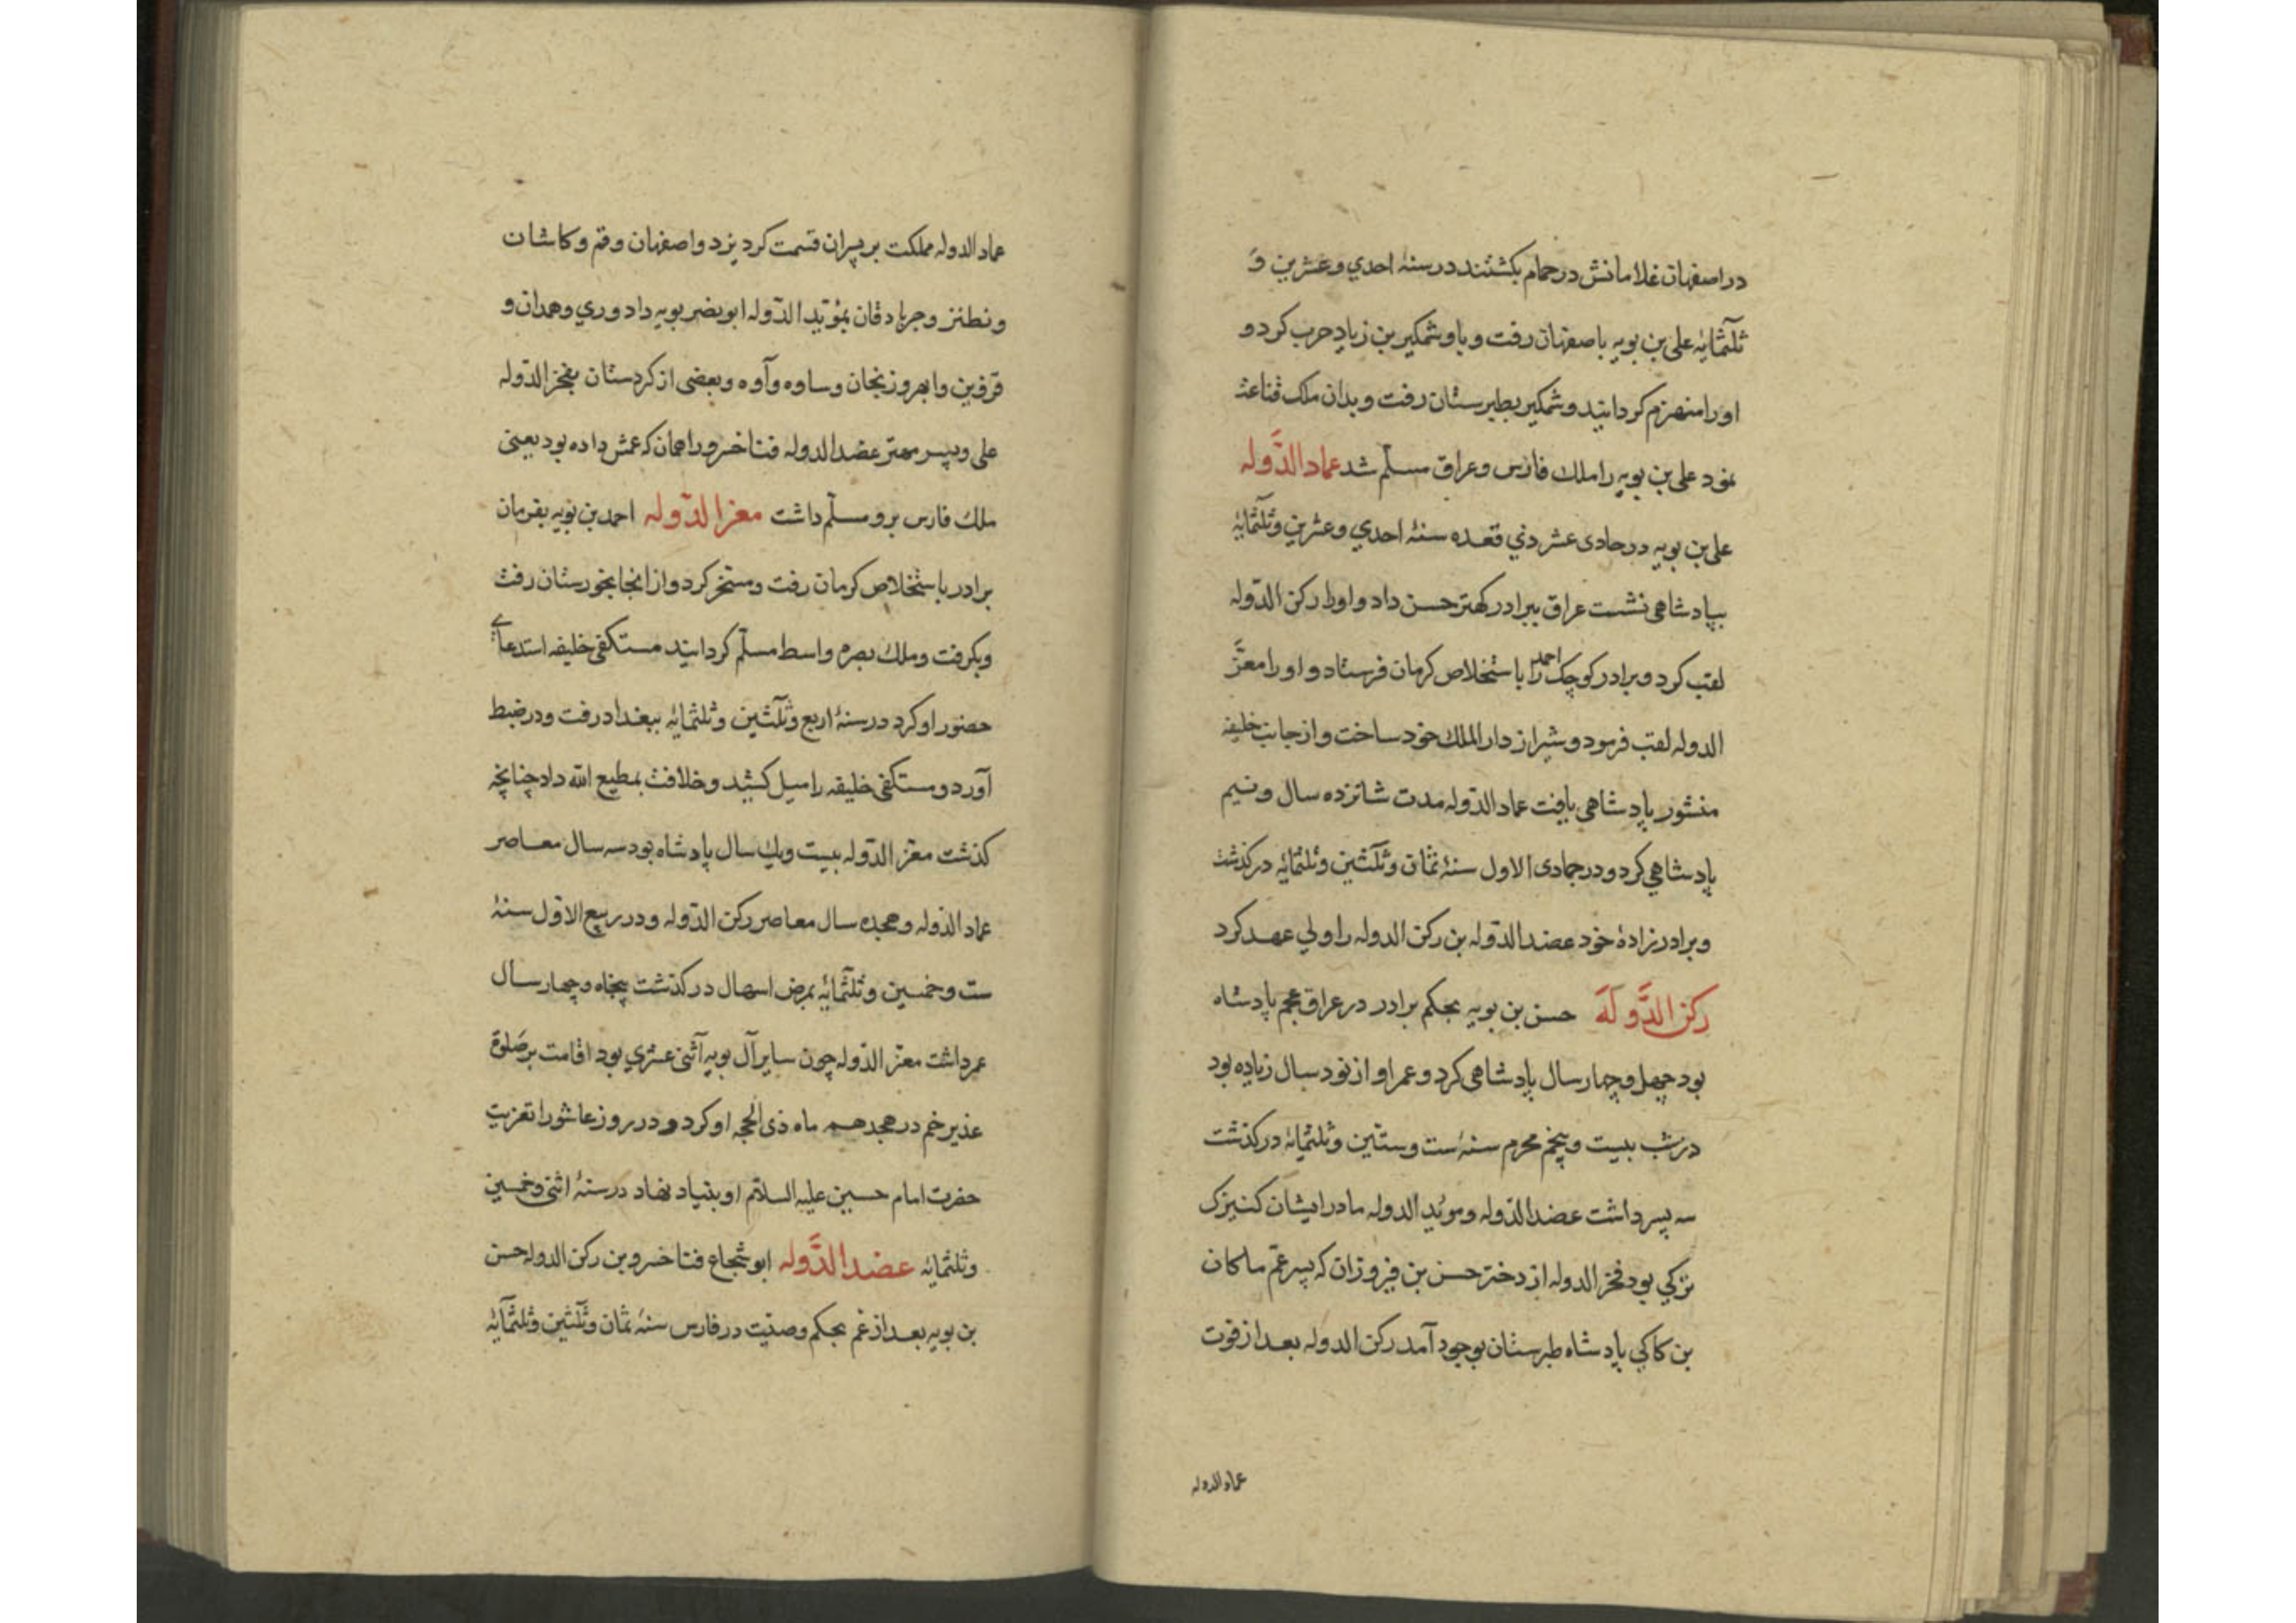 در اصفهان غلامانش در حمام بکشتند در سنه احدي و عشرين و
ثلثمايه علی بن بويه باصفهان رفت و با وشمکير بن زياد حرب کرد و
او را منهزم کردانيد وشمکير بطبرستان رفت و بدان ملک قناعت
نمود علی بن بويه را ملک فارس و عراق مسلّم شد عماد الدَّوله
علی بن بويه در حادی عشر ذي قعده سنهٔ احدي و عشرين و ثلثمايهٔ
بپادشاهی نشست عراق ببرادر کهتر حسن داد و اورا رکن الدّوله
لقب کرد و برادر کوچک احمد را باستخلاص کرمان فرستاد و او را معزّ
الدوله لقب فرمود و شيراز دار الملک خود ساخت و از جانب خليفه
منشور پادشاهی يافت عماد الدّوله مدت شانزده سال و نيم
پادشاهي کرد و در جمادی الاول سنهٔ ثمان و ثلثين و ثلثمايهٔ درکذشت
و برادر زادهٔ خود عضد الدّوله بن رکن الدوله را ولي عهد کرد
رکن الدَّولَه حسن بن بويه بحکم برادر در عراق عجم پادشاه
بود چهل و چهار سال پادشاهی کرد و عمر او از نود سال زياده بود
در شب بيست و پنجم محرم سنهٔ ست و ستين و ثلثمايهٔ درکذشت
سه پسر داشت عضد الدّوله و مويد الدوله مادر ايشان کنيزک
ترکي بود فخر الدوله از دختر حسن بن فيروزان که پسر عمّ ماکان
بن کاکي پادشاه طبرستان بوجود آمد رکن الدوله بعد از فوت
عماد الدوله
عماد الدوله مملکت بر پسران قسمت کرد يزد و اصفهان و قم و کاشان
و نطنز و جرباد قان بمؤيد الدّوله ابو نصر بويه داد و ري و همدان و
قزوين و ابهر و زنجان و ساوه و آوه و بعضی از کردستان بفخر الدّوله
علی و پسر مهتر عضد الدوله فنا خسرو را همان که عمش داده بود يعنی
ملک فارس برو مسلّم داشت معز الدّوله احمد بن بويه بفرمان
برادر باستخلاص کرمان رفت و مسخر کرد و از انجا بخورستان رفت
و بکرفت و ملک بصره و اسط مسلّم کردانيد مستکفی خليفه استدعاے
حضور او کرد در سنهٔ اربع و ثلثين و ثلثمايهٔ ببغداد رفت و در ضبط
آورد و مستکفی خليفه را ميل کشيد و خلافت بمطيع الله داد چنانچه
کذشت معزّ الدّوله بيست ويک سال پادشاه بود سه سال معاصر
عماد الدّوله و هجده سال معاصر رکن الدّوله و در ربيع الاوّل سنهٔ
ست و خمسين و ثلثمايهٔ بمرض اسهال درکذشت پنجاه و چهار سال
عمر داشت معزّ الدّوله چون ساير آل بويه اثنی عشري بود اقامت بر صلوة
غدير خم در هجدهم ماه ذی الحجه او کرد و در روز عاشورا تعزيت
حضرت امام حسين عليه السلام او بنياد نهاد در سنهٔ اثنی و خمسين
و ثلثمايهٔ عضد الدَّوله ابو شجاع فنا خسرو بن رکن الدوله حسن
بن بويه بعد از عم بحکم وصيّت در فارس سنهٔ ثمان و ثلثين و ثلثمايهٔ